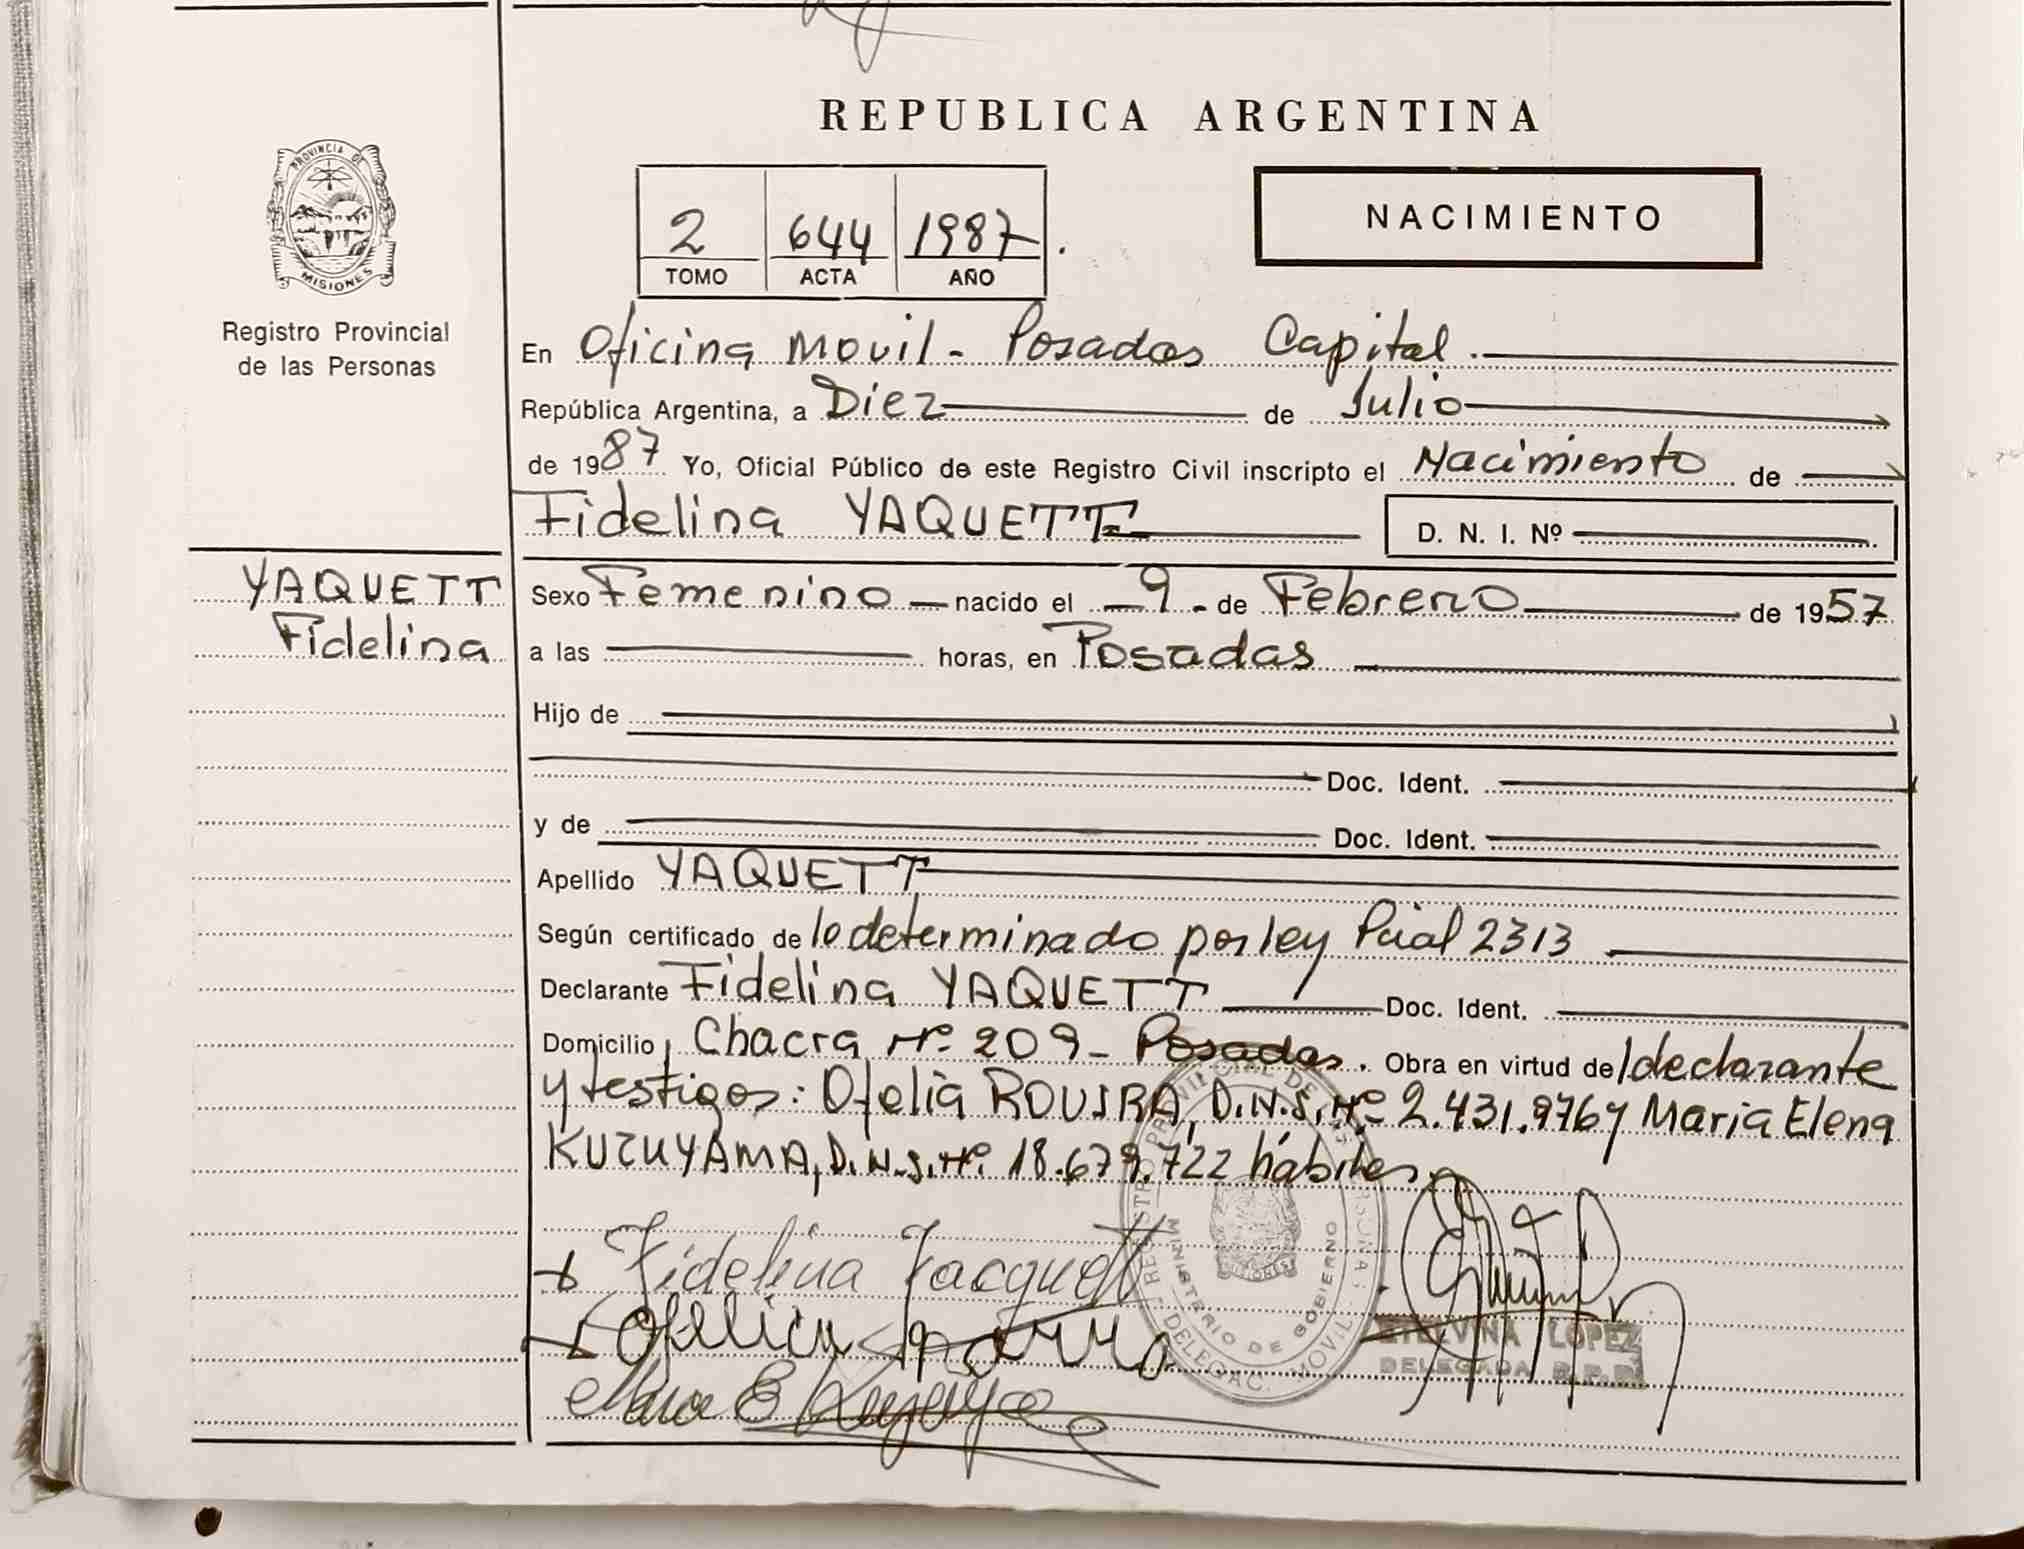 REPUBLICA ARGENTINA
PROVINCIA DE
MISIONES
Registro Provincial
de las Personas
2 644 1987
TOMO ACTA AÑO
NACIMIENTO
En Oficina Movil - Posadas Capital.
República Argentina, a Diez de Julio
de 1987 Yo, Oficial Público de este Registro Civil inscripto el Nacimiento de
Fidelina YAQUETT D. N. I. Nº
YAQUETT
Fidelina
Sexo Femenino nacido el 9 - de Febrero de 1957
a las horas, en Posadas
Hijo de
Doc. Ident.
y de Doc. Ident.
Apellido YAQUETT
Según certificado de lo determinado por ley Pcial 2313
Declarante Fidelina YAQUETT Doc. Ident.
Domicilio Chacra Nº 209 - Posadas. Obra en virtud de declarante
y testigos: Ofelia ROVIRA, D.N.I. Nº 2.431.976 y Maria Elena
KUZUYAMA, D.N.I. Nº 18.679.722 hábiles.
Fidelina Yacquett
REGISTRO PROVINCIAL DE LAS PERSONAS
MINISTERIO DE GOBIERNO
DELEGAC. MOVIL
MISIONES
LOPEZ
DELEGADA R.P.P.